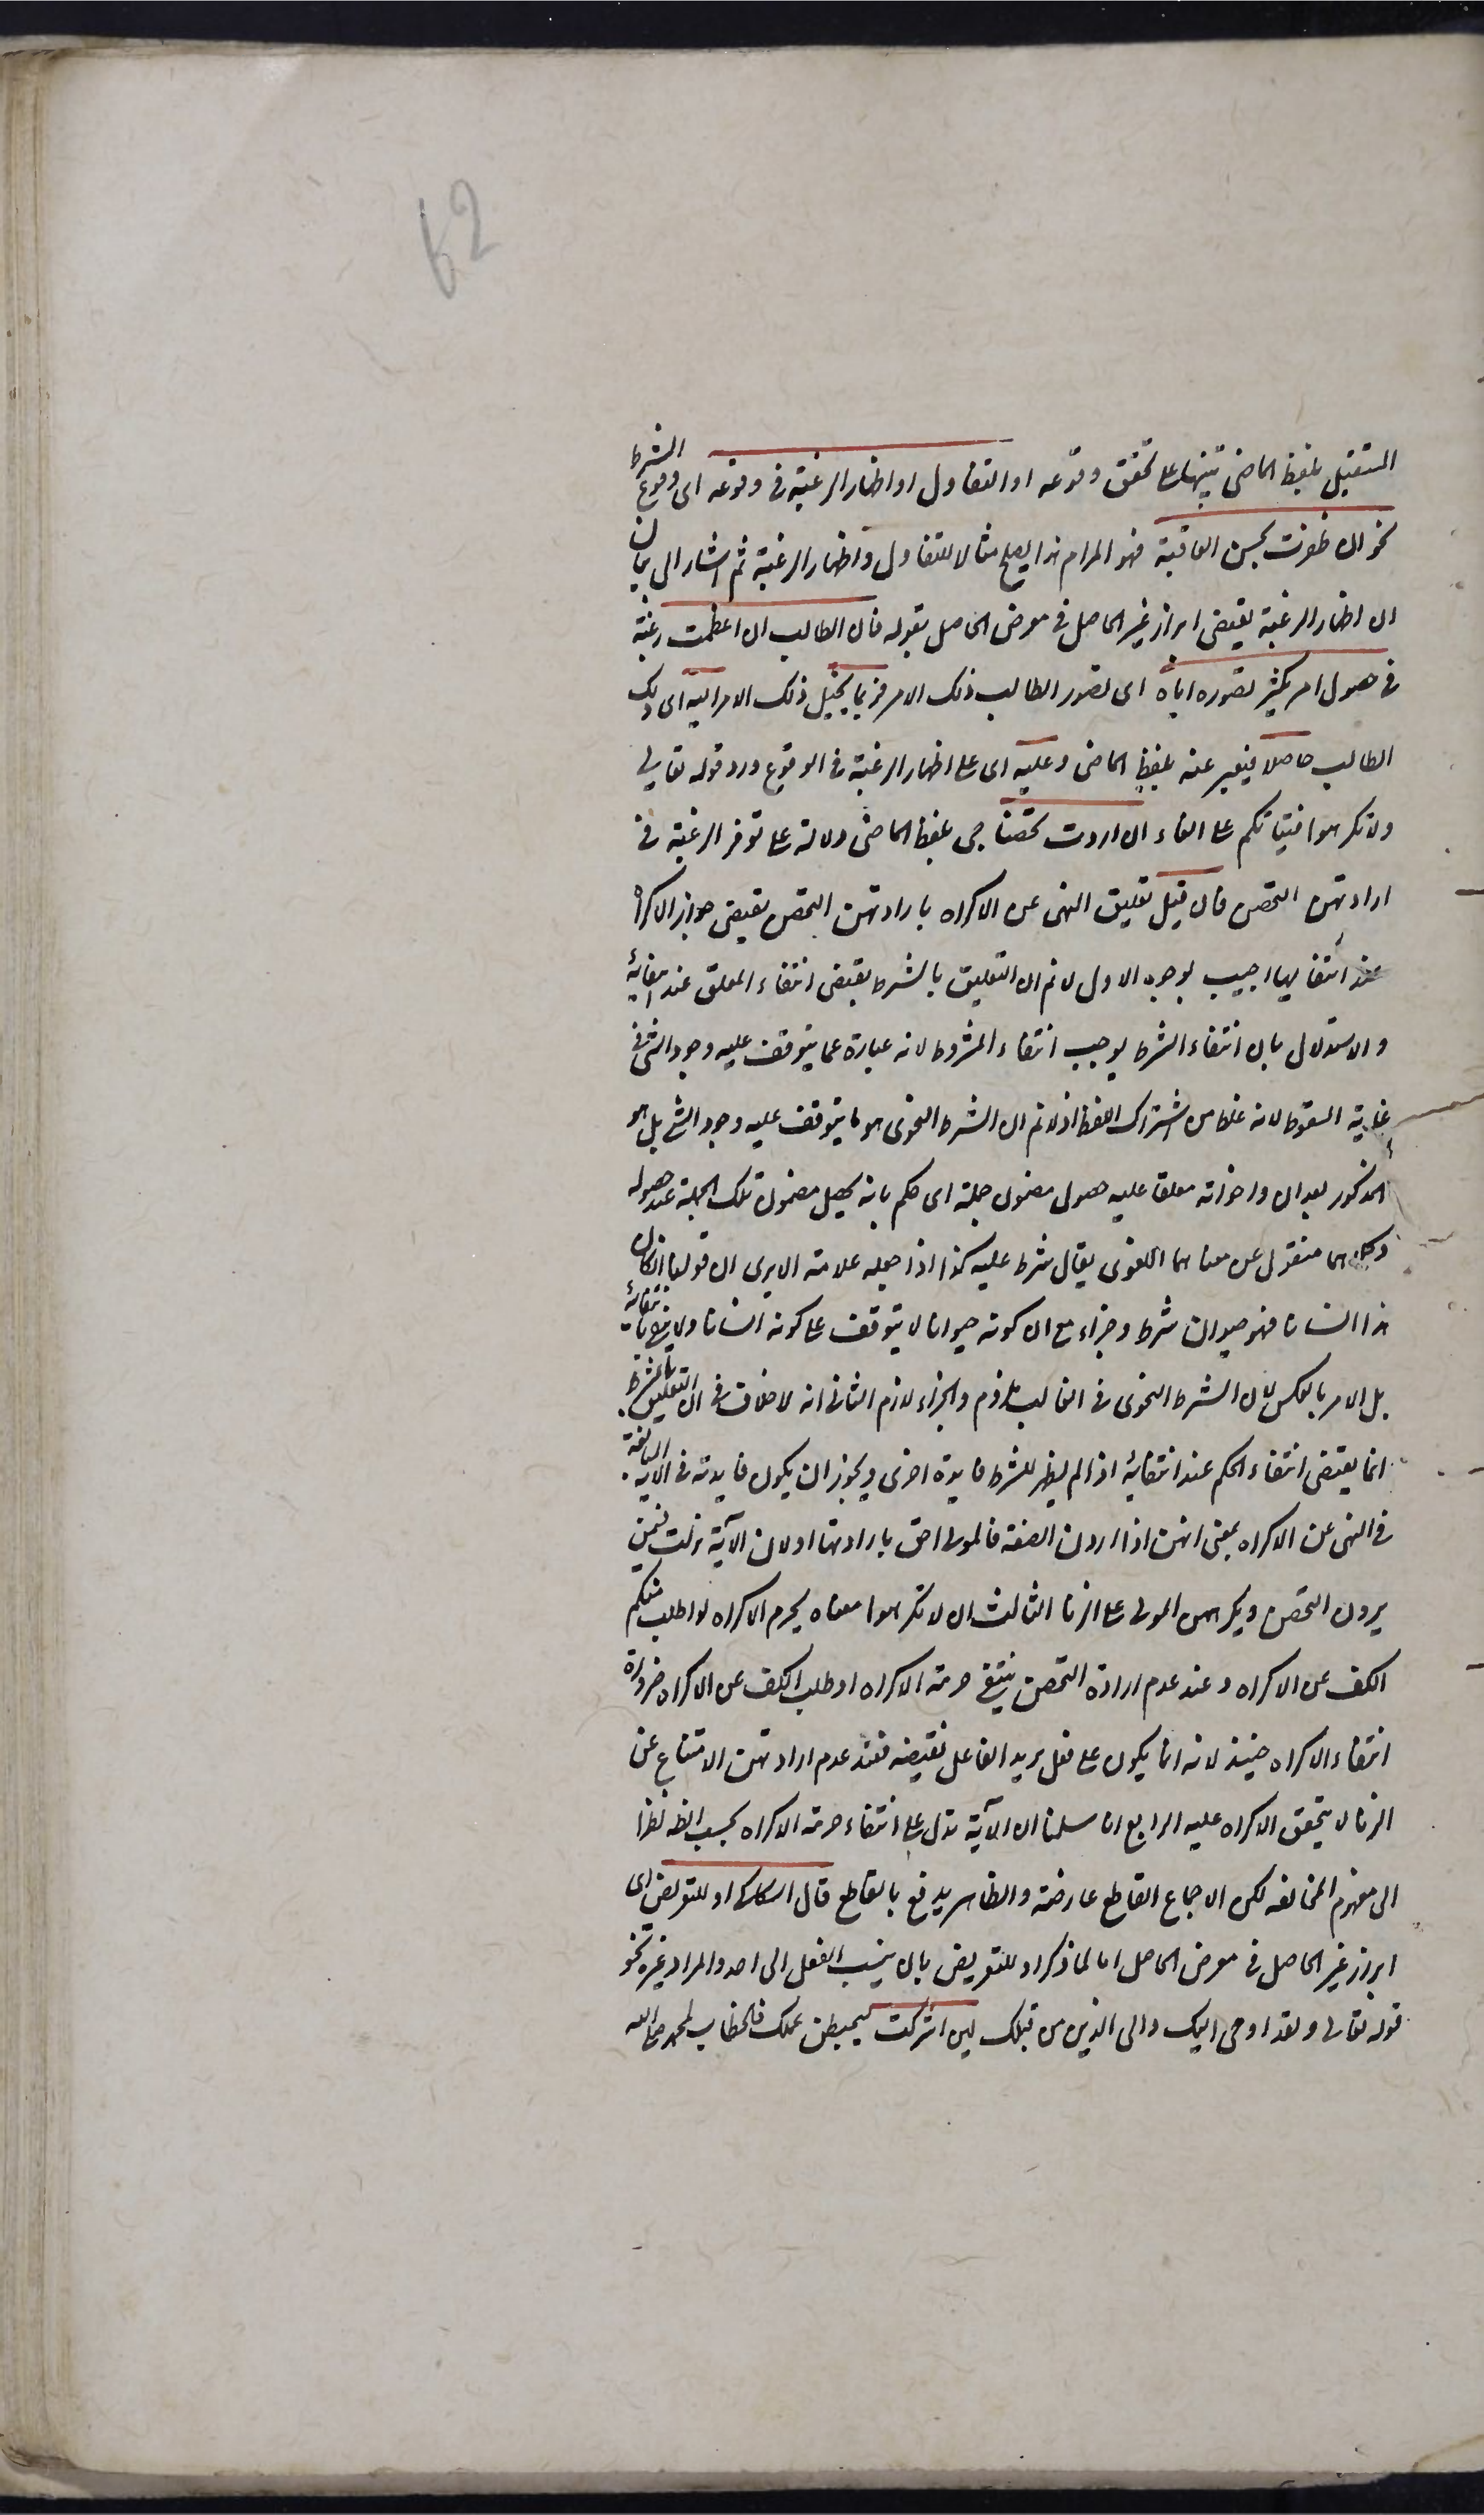 62
المستقبل بلفظ الماضى تنبيها على تحقق وقوعه او التفاول او اظهار الرغبة فى وقوعه اى وقوع الشرط
نحو ان ظفرت بحسن العاقبة فهو المرام هذا يصلح مثالا للتفاول واظهار الرغبة ثم اشار الى بيان
ان اظهار الرغبة يقتضى ابراز غير الحاصل فى معرض الحاصل بقوله فان الطالب ان اعظمت رغبته
فى حصول امر يكثر تصوره اياه اى تصور الطالب ذلك الامر فربما يخيل ذلك الامر اليه اى ذلك
الطالب حاصلا فيعبر عنه بلفظ الماضى وعليه اى على اظهار الرغبة فى الوقوع ورد قوله تعالى
ولا تكرهوا فتياتكم على البغاء ان اردن تحصنا جى بلفظ الماضى دلالة على توفر الرغبة فى
ارادتهن التحصن فان قيل تعليق النهى عن الاكراه بارادتهن التحصن يقتضى جواز الاكراه
عند انتفائها اجيب بوجوه الاول لا نم ان التعليق بالشرط يقتضى انتفاء المعلق عند انتفائه
والاستدلال بان انتفاء الشرط يوجب انتفاء المشروط لانه عبارة عما يتوقف عليه وجود الشئ فى
غاية السقوط لانه غلط من اشتراك اللفظ اذ لا نم ان الشرط النحوى هو ما يتوقف عليه وجود الشئ بل هو
المذكور بعد ان واخواته معلقا عليه حصول مضمون جملة اى حكم بانه يحصل مضمون تلك الجملة عند حصوله
وكلاهما منقول عن معناهما اللغوى يقال شرط عليه كذا اذا جعله علامة الا يرى ان قولنا ان كان
هذا انسانا فهو حيوان شرط وجزاء مع ان كونه حيوانا لا يتوقف على كونه انسانا ولا ينتفى بانتفائه
بل الامر بالعكس لان الشرط النحوى فى الغالب ملزوم والجزاء لازم الثانى انه لا خلاف فى ان التعليق بالشرط
انما يقتضى انتفاء الحكم عند انتفائه اذا لم يظهر للشرط فايدة اخرى ويجوز ان يكون فايدته فى الآية المبالغة
فى النهى عن الاكراه بمعنى انهن اذا اردن العفة فالمولى احق بارادتها او لان الآية نزلت فيمن
يردن التحصن ويكرههن المولى على الزنا الثالث ان لا تكرهوا معناه يحرم الاكراه او اطلب منكم
الكف عن الاكراه وعند عدم ارادة التحصن ينتفى حرمة الاكراه او طلب الكف عن الاكراه ضرورة
انتفاء الاكراه حينئذ لانه انما يكون على فعل يريد الفاعل نقيضه فعند عدم ارادتهن الامتناع عن
الزنا لا يتحقق الاكراه عليه الرابع انا سلمنا ان الآية تدل على انتفاء حرمة الاكراه بحسب الظ نظرا
الى مفهوم المخالفه لكن الاجماع القاطع عارضه والظاهر يدفع بالقاطع قال السكاكى او للتعريض اى
ابراز غير الحاصل فى معرض الحاصل اما لما ذكر او للتعريض بان ينسب الفعل الى احد والمراد غيره نحو
قوله تعالى ولقد اوحى اليك والى الذين من قبلك لئن اشركت ليحبطن عملك فالخطاب لمحمد صلى الله